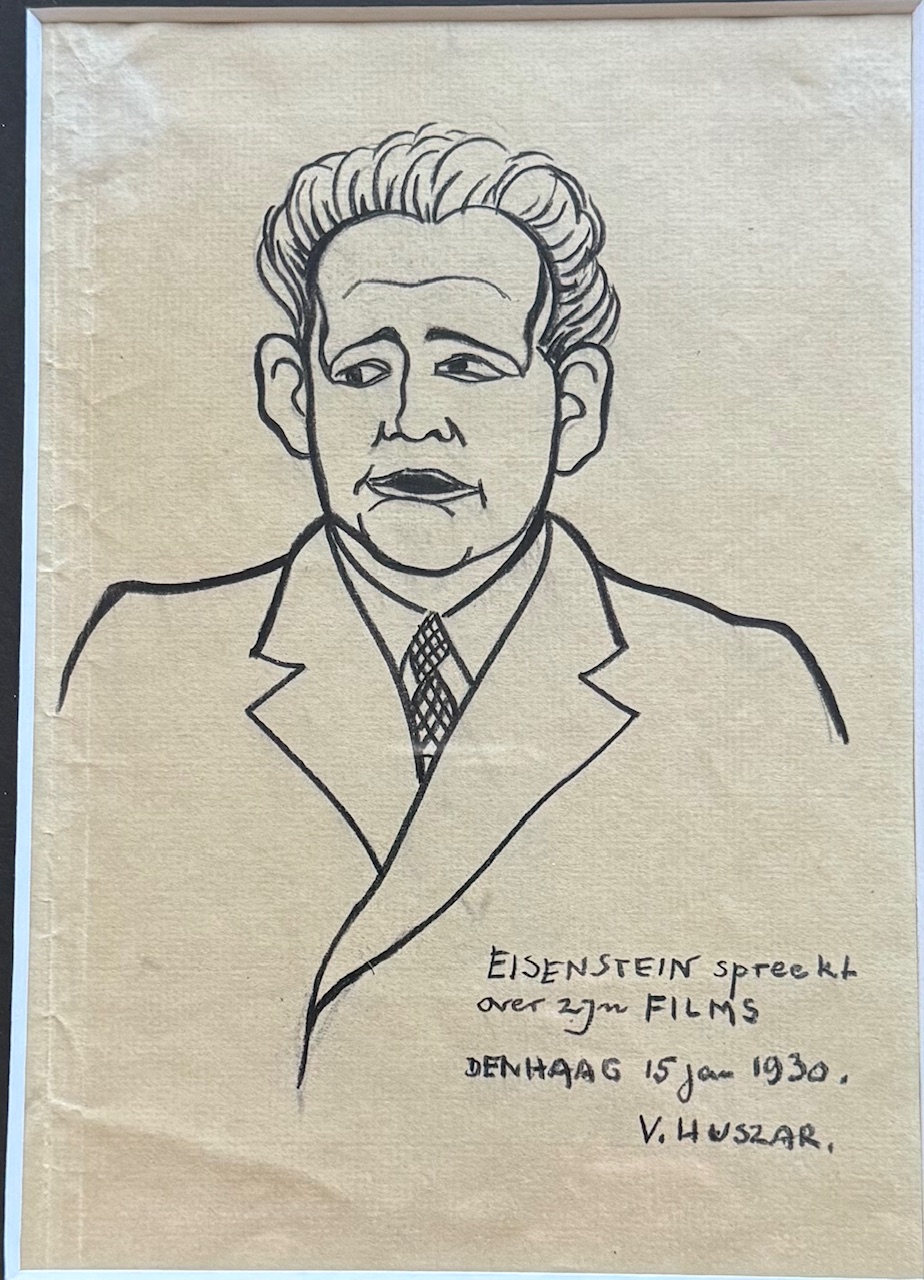 EISENSTEIN spreekt
over zijn FILMS
DEN HAAG 15 jan 1930.
V. HUSZAR.